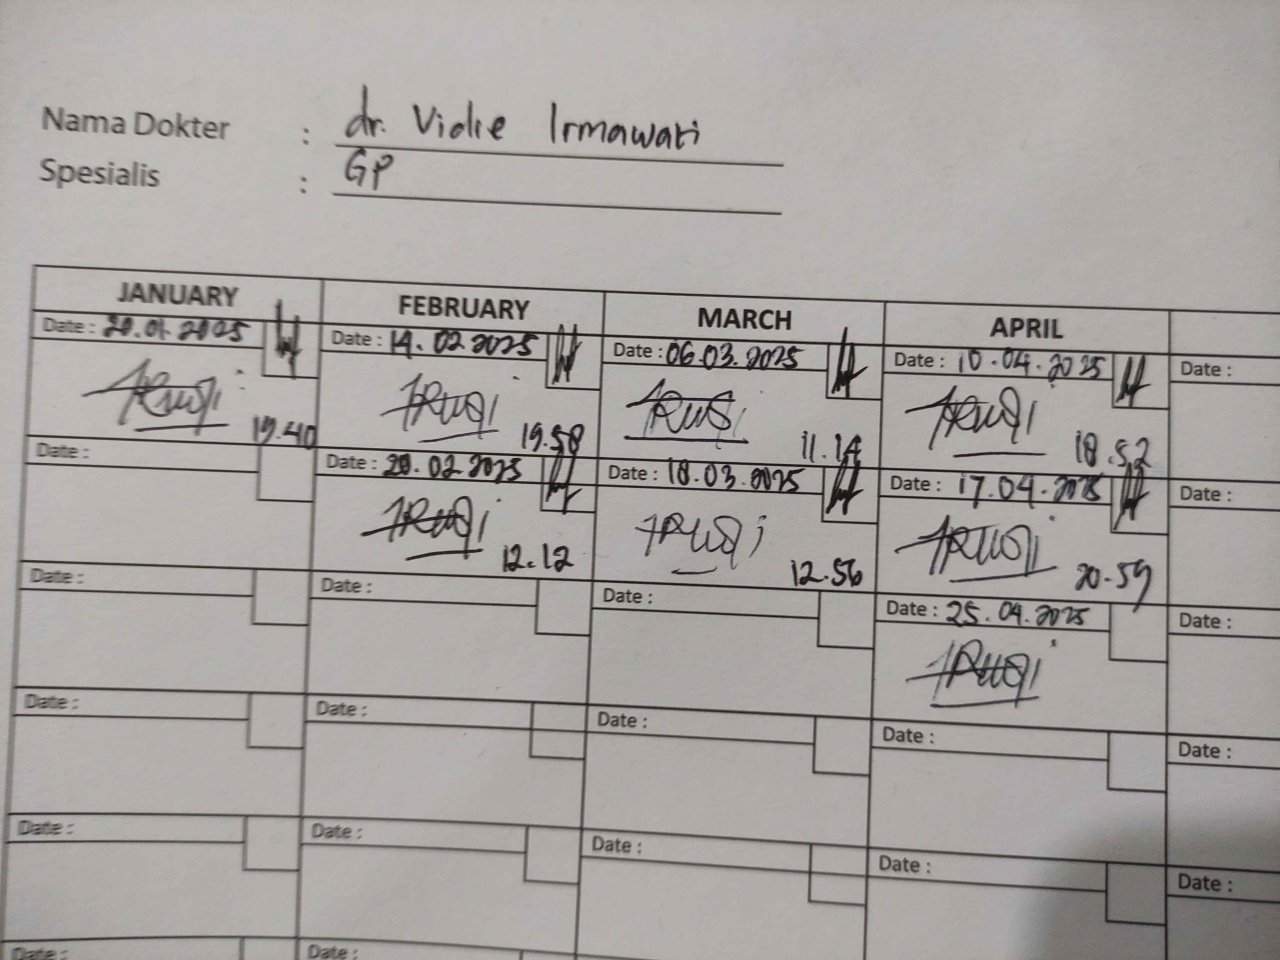 Nama Dokter : dr. Vidie Irmawati
Spesialis : GP
JANUARY FEBRUARY MARCH APRIL
Date : 20.01.2025 Date : 14.02.2025 Date : 06.03.2025 Date : 10.04.2025 Date :
19.40 19.58 11.14 18.52
Date : Date : 20.02.2025 Date : 18.03.2025 Date : 17.04.2025 Date :
12.12 12.56 20.59
Date : Date : Date : Date : 25.04.2025 Date :
Date : Date : Date : Date : Date :
Date : Date : Date : Date : Date :
Date : Date :